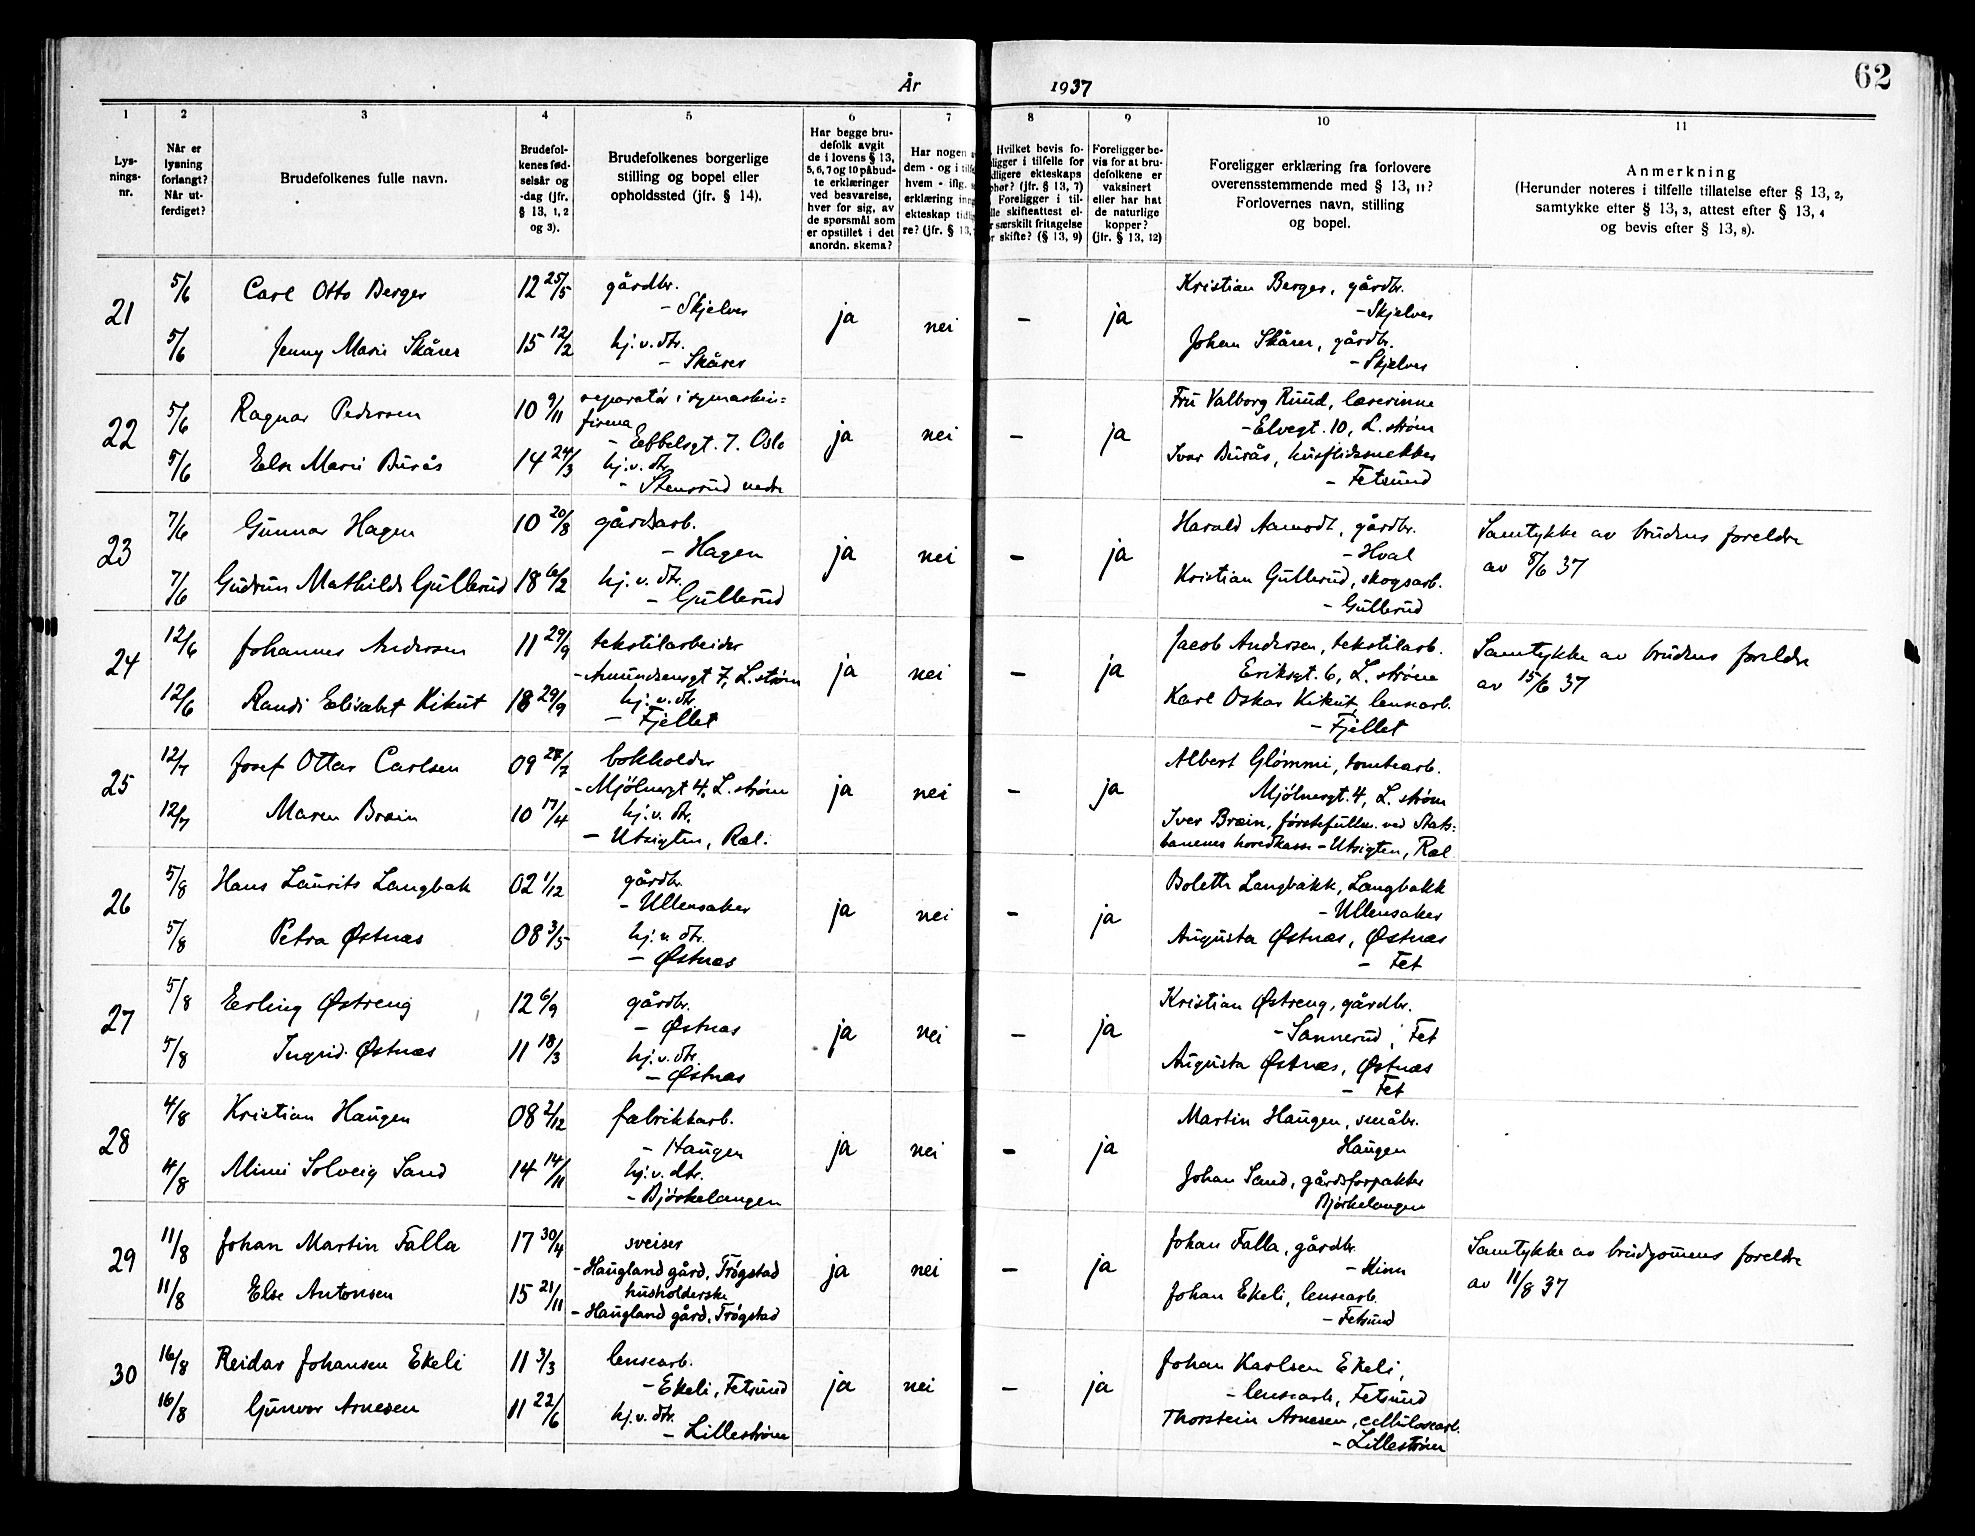 62
År 1937
1 2 3 4 5 6 7 8 9 10 11
Lys-
nings-
nr.
Når er
lysning
forlangt?
Når ut-
ferdiget?
Brudefolkenes fulle navn.
Brudefol-
kenes fød-
selsår og
-dag (jfr.
§ 13, 1, 2
og 3).
Brudefolkenes borgerlige
stilling og bopel eller
opholdssted (jfr. § 14).
Har begge bru-
defolk avgit
de i lovens § 13,
5, 6, 7 og 10 påbud-
te erklæringer
ved besvarelse,
hver for sig, av
de spørsmål som
er opstillet i det
anordn. skema?
Har nogen
dem - og i tilf
hvem - iflg.
erklæring inng
ekteskap tidlig
re? (jfr. § 13,
Hvilket bevis fo-
ligger i tilfelle for
dligere ekteskaps
phør? (jfr. § 13, 7)
Foreligger i til-
lle skifteattest el-
r særskilt fritagelse
r skifte? (§ 13, 9)
Foreligger be-
vis for at bru-
defolkene er
vaksinert
eller har hat
de naturlige
kopper?
(jfr. § 13, 12)
Foreligger erklæring fra forlovere
overensstemmende med § 13, 11?
Forlovernes navn, stilling
og bopel.
Anmerkning
(Herunder noteres i tilfelle tillatelse efter § 13, 2,
samtykke efter § 13, 3, attest efter § 13, 4
og bevis efter § 13, 8).
21
5/6 Carl Otto Berger 12 25/5 gårdbr.
- Skjelver
5/6 Jenny Marie Skårer 15 12/2 hj.v.dtr.
- Skårer
ja nei - ja
Kristian Berger, gårdbr.
- Skjelver
Johan Skårer, gårdbr.
- Skjelver
22
5/6 Ragnar Pedersen 10 9/11 reparatør i symaskin=
firma
- Eebbelsgt. 7. Oslo
5/6 Else Marie Burås 14 24/3 hj.v.dtr.
- Stensrud nedre
ja nei - ja
Fru Valborg Ruud, lærerinne
- Elvegt. 10, L.strøm
Ivar Burås, husflidssnekker
- Fetsund
23
7/6 Gunnar Hagen 10 20/8 gårdsarb.
- Hagen
7/6 Gudrun Mathilde Gullerud 18 6/2 hj.v.dtr.
- Gullerud
ja nei - ja
Harald Aamodt, gårdbr.
- Hval
Kristian Gullerud, skogsarb.
- Gullerud
Samtykke av brudens foreldre
av 8/6 37
24
12/6 Johannes Andersen 11 29/9 tekstilarbeider
- Amundsensgt 7, L.strøm
12/6 Randi Elisabet Kikut 18 29/9 hj.v.dtr.
- Fjellet
ja nei - ja
Jacob Andersen, tekstilarb.
Eriksgt. 6, L.strøm
Karl Oskar Kikut, lensearb.
- Fjellet
Samtykke av brudens foreldre
av 15/6 37
25
12/7 Josef Ottar Carlsen 09 28/7 bokholder
- Mjölnergt 4, L.strøm
12/7 Maren Bræin 10 17/4 hj.v.dtr.
- Utsigten, Ræl.
ja nei - ja
Albert Glømmi, tomtearb.
Mjölnergt. 4, L.strøm
Iver Bræin, førstefullm. ved Stats=
banenes hovedkasse - Utsigten, Ræl
26
5/8 Hans Laurits Langbak 02 1/12 gårdbr.
- Ullensaker
5/8 Petra Østnæs 08 3/5 hj.v.dtr.
- Østnæs
ja nei - ja
Bolette Langbakk, Langbakk
- Ullensaker
Augusta Østnæs, Østnæs
- Fet
27
5/8 Erling Østreng 12 6/9 gårdbr.
- Østnæs
5/8 Ingrid Østnæs 11 18/3 hj.v.dtr.
- Østnæs
ja nei - ja
Kristian Østreng, gårdbr.
- Sannerud, Fet
Augusta Østnæs, Østnæs
- Fet
28
4/8 Kristian Haugen 08 2/12 fabrikkarb.
- Haugen
4/8 Mimi Solveig Sand 14 14/11 hj.v.dtr.
- Bjørkelangen
ja nei - ja
Martin Haugen, småbr.
Haugen
Johan Sand, gårdsforpakter
Bjørkelangen
29
11/8 Johan Martin Falla 17 30/4 sveiser
- Haugland gård, Trøgstad
11/8 Else Antonsen 15 21/11 husholderske
- Haugland gård, Trøgstad
ja nei - ja
Johan Falla, gårdbr.
- Kinn
Johan Ekeli, lensearb.
- Fetsund
Samtykke av brudgomens foreldre
av 11/8 37
30
16/8 Reidar Johansen Ekeli 11 3/3 lensearb.
- Ekeli, Fetsund
16/8 Gunvor Arnesen 11 22/6 hj.v.dtr.
- Lillestrøm
ja nei - ja
Johan Karlsen Ekeli,
- lensearb, Fetsund
Thorstein Arnesen, cellulosearb.
- Lillestrøm